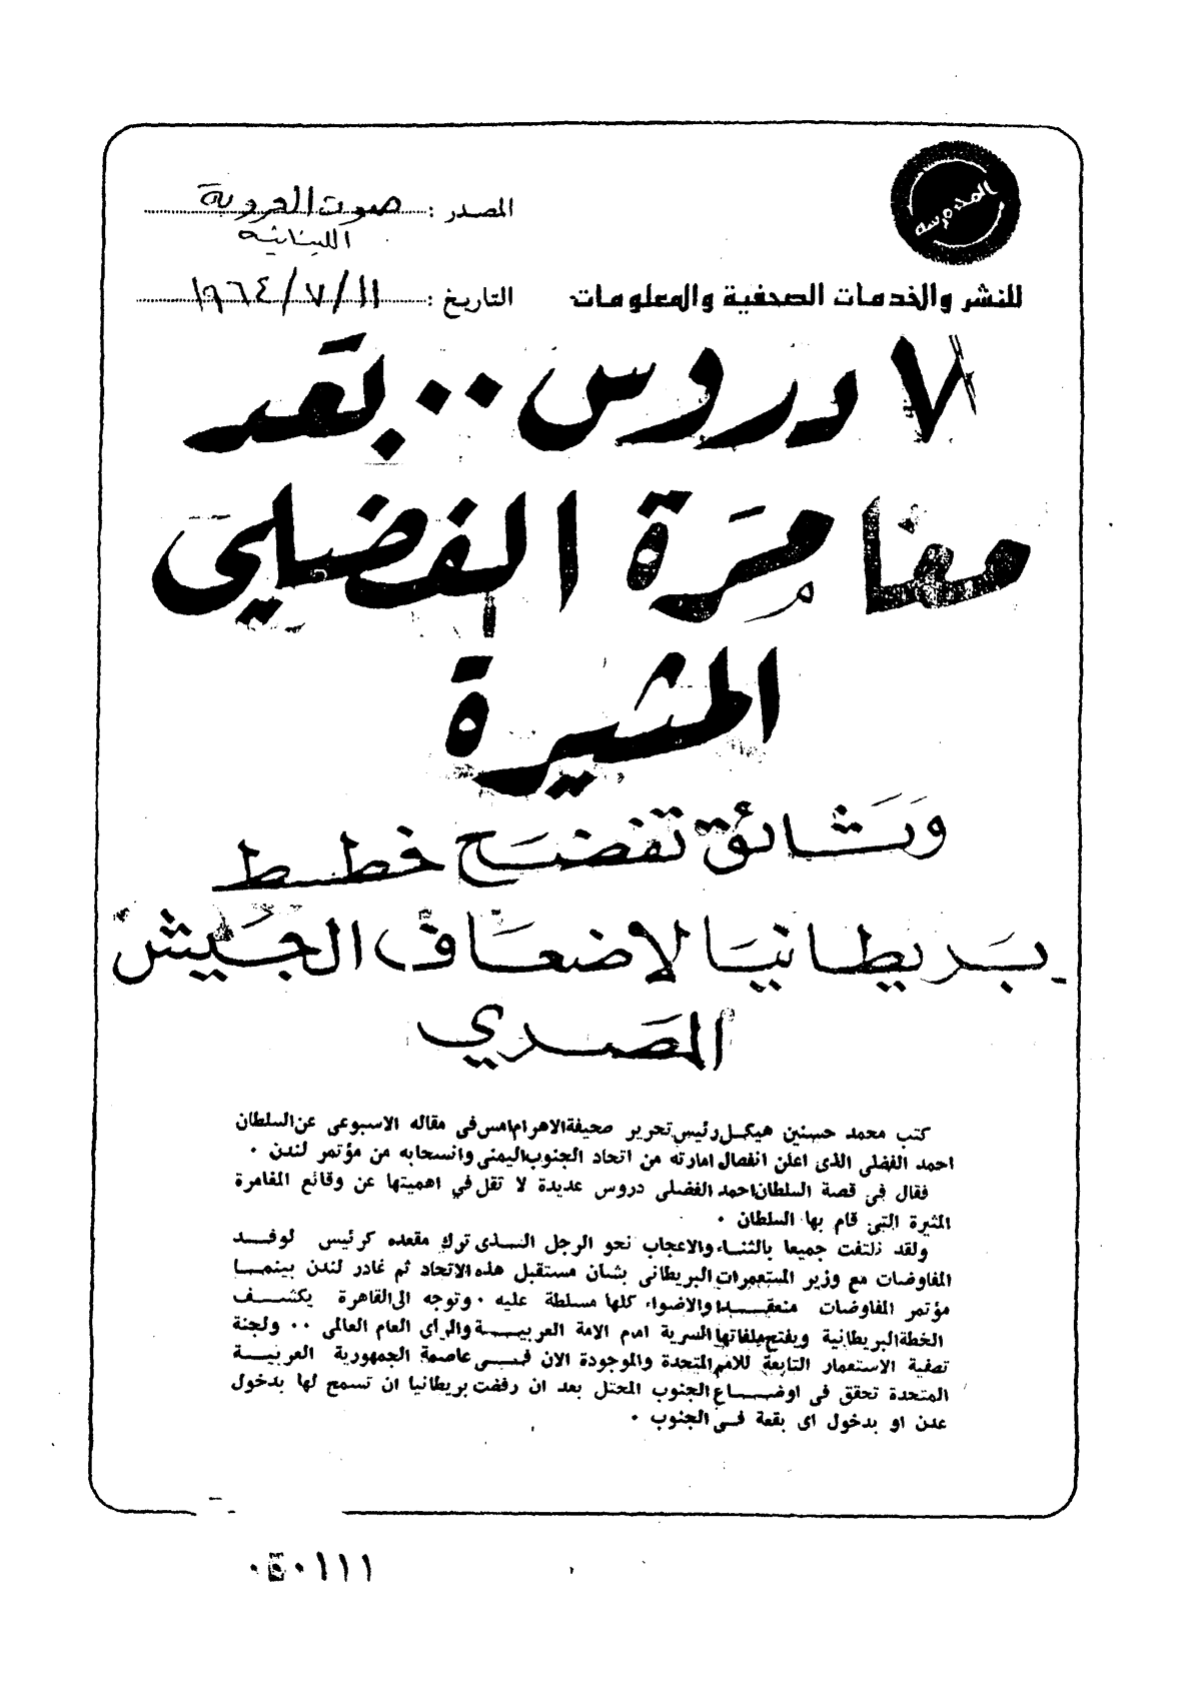 المدرسة
المصدر : صوت العروبة
اللبنانية
للنشر والخدمات الصحفية والمعلومات التاريخ : ١١/٧/١٩٦٤
٧ دروس .. بعد
مغامرة الفضلي
المثيرة
وثائق تفضح خطط
بريطانيا لاضعاف الجيش
المصري
كتب محمد حسنين هيكل رئيس تحرير صحيفة الاهرام امس فى مقاله الاسبوعى عن السلطان
احمد الفضلى الذى اعلن انفصال امارته من اتحاد الجنوب اليمنى وانسحابه من مؤتمر لندن .
فقال فى قصة السلطان احمد الفضلى دروس عديدة لا تقل في اهميتها عن وقائع المغامرة
المثيرة التى قام بها السلطان .
ولقد نلتفت جميعا بالثناء والاعجاب نحو الرجل الذى ترك مقعده كرئيس لوفد
المفاوضات مع وزير المستعمرات البريطانى بشان مستقبل هذه الاتحاد ثم غادر لندن بينما
مؤتمر المفاوضات منعقدا والاضواء كلها مسلطة عليه . وتوجه الى القاهرة يكشف
الخطة البريطانية ويفتح ملفاتها السرية امام الامة العربية والراى العام العالمى .. ولجنة
تصفية الاستعمار التابعة للامم المتحدة والموجودة الان فى عاصمة الجمهورية العربية
المتحدة تحقق فى اوضاع الجنوب المحتل بعد ان رفضت بريطانيا ان تسمح لها بدخول
عدن او بدخول اى بقعة فى الجنوب .